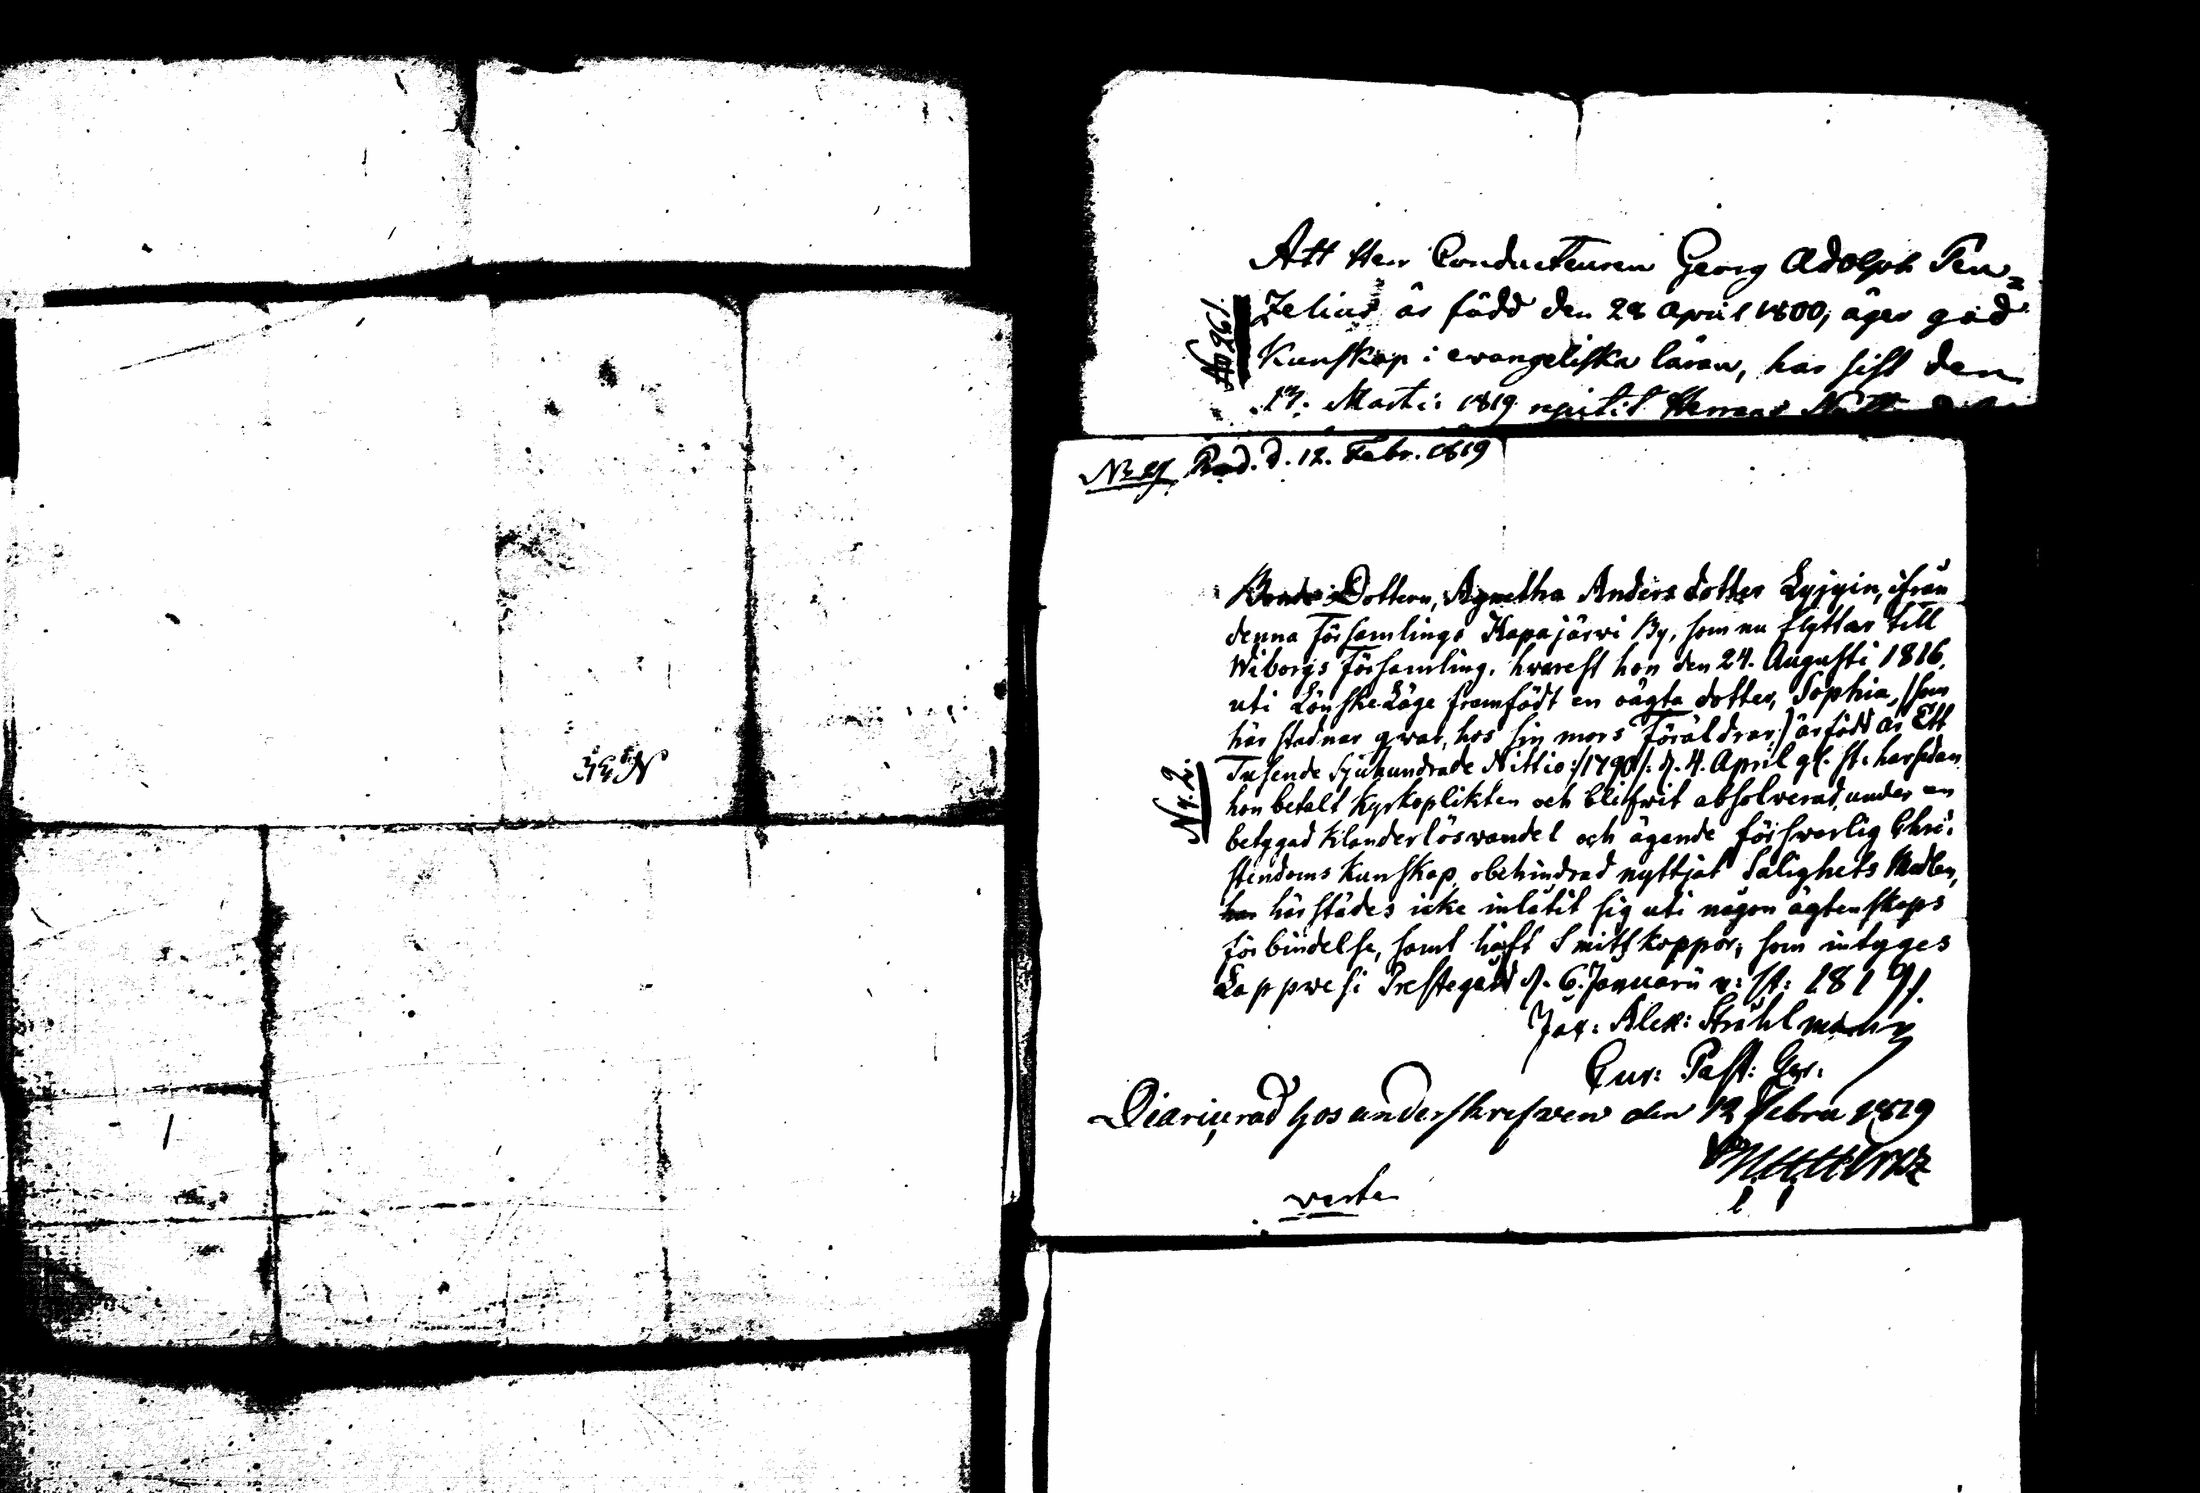 Att Herr Conducteuren Georg Adolph Ten=
zelius är född den 28 April 1800, äger god
Kunskap i evangeliska läran, har sist den
13. Martii 1819 nyttit Herrans Natt
No 261.
Prod. d. 12. Febr. 1819
Bonde Dottern, Agnetha Anders dotter Lyjyin, ifrån
denna Församlings Kapajärwi By, som nu flyttar till
Wiborgs Församling, hwarest hon den 24. Augusti 1816,
uti Lönskeläge framfödt en oägta dotter, Sophia, /: som
här stadnar qwar, hos sin mors Föräldrar :/ är född år Ett
Tusende Sjuhundrade Nittio /: 1790 :/ d. 4. April gl. st. har sedan
hon betalt Kyrkoplikten och blifwit absolverad, under en
betygad Klanderlös vandel och ägande förswarlig Chri-
stendoms Kunskap, obehindrad nyttjat Salighets Medlen,
har härstädes icke inlåtit sig uti någon ägtenskaps
förbindelse, samt haft Smittkoppor; som intyges
Lappwesi Prestegård d. 6. Januarii n: st: 1819.
No. 2.
Jac: Alex: Stråhlman
Cur: Past: Gər:
Diariurad hos underskrefwen den 12 Febru 1819
verte